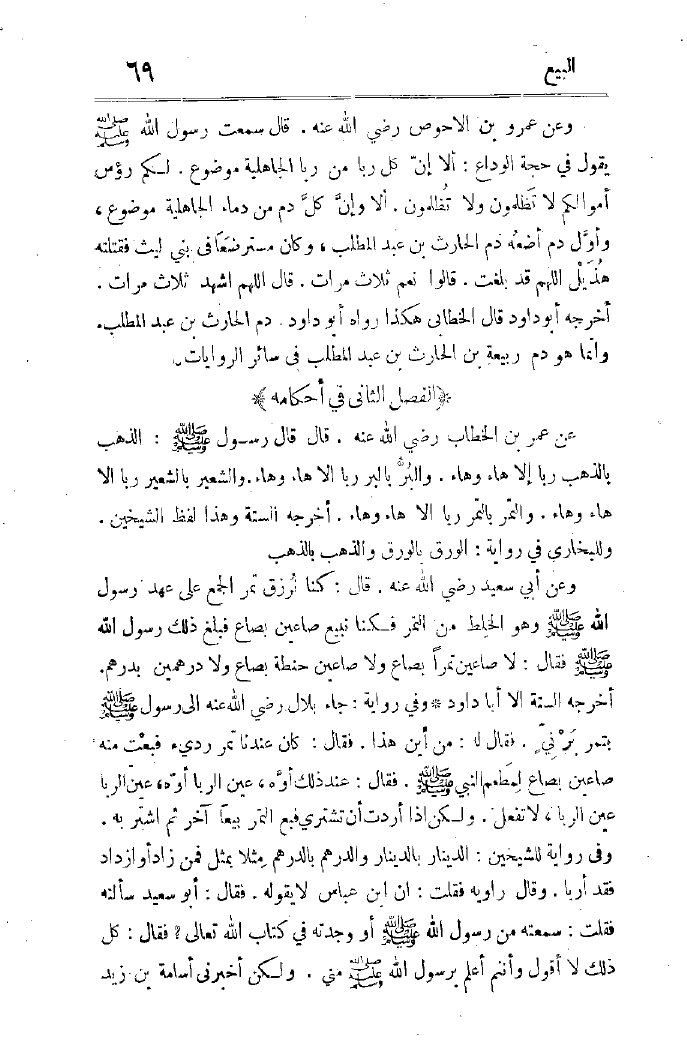 البيع ٦٩
وعن عمرو بن الاحوص رضي الله عنه . قال سمعت رسول الله ﷺ
يقول في حجة الوداع : ألا إنّ كل ربا من ربا الجاهلية موضوع . لكم رؤس
أموالكم لا تَظلمون ولا تُظلمون . ألا وإنَّ كلَّ دم من دماء الجاهلية موضوع ،
وأوَّل دم أضعُه دم الحارث بن عبد المطلب ، وكان مسترضعًا فى بني ليث فقتلته
هُذَيل اللهم قد بلغت . قالوا نعم ثلاث مرات . قال اللهم اشهد ثلاث مرات .
أخرجه أبو داود قال الخطابى هكذا رواه أبو داود . دم الحارث بن عبد المطلب.
وانما هو دم ربيعة بن الحارث بن عبد المطلب فى سائر الروايات .
﴿الفصل الثانى في أحكامه﴾
عن عمر بن الخطاب رضي الله عنه . قال قال رسول ﷺ : الذهب
بالذهب ربا إلا هاء وهاء . والبُرُّ بالبر ربا الا هاء وهاء . والشعير بالشعير ربا الا
هاء وهاء . والتمر بالتمر ربا الا هاء وهاء . أخرجه الستة وهذا لفظ الشيخين .
وللبخاري في رواية : الورق بالورق والذهب بالذهب
وعن أبي سعيد رضي الله عنه . قال : كنا نُرزق تمر الجمع على عهد رسول
الله ﷺ وهو الخلط من التمر فكنا نبيع صاعين بصاع فبلغ ذلك رسول الله
ﷺ فقال : لا صاعين تمراً بصاع ولا صاعين حنطة بصاع ولا درهمين بدرهم.
أخرجه الستة الا أبا داود * وفي رواية : جاء بلال رضي الله عنه الى رسول ﷺ
بتمر بَرْنيّ . فقال له : من أين هذا . فقال : كان عندنا تمر رديء فبعْت منه
صاعين بصاع لمَطعم النبي ﷺ . فقال : عند ذلك أوَّه ، عين الربا أوّه ، عين الربا
عين الربا ، لا تفعل . ولكن اذا أردت أن تشتري فبع التمر بيعاً آخر ثم اشتر به .
وفى رواية للشيخين : الدينار بالدينار والدرهم بالدرهم مِثلا بمثل فمن زاد أو ازداد
فقد أربا . وقال راويه فقلت : ان ابن عباس لا يقوله . فقال : أبو سعيد سألته
فقلت : سمعته من رسول الله ﷺ أو وجدته في كتاب الله تعالى ? فقال : كل
ذلك لا أقول وأنتم أعلم برسول الله ﷺ مني . ولكن أخبرنى أسامة بن زيد